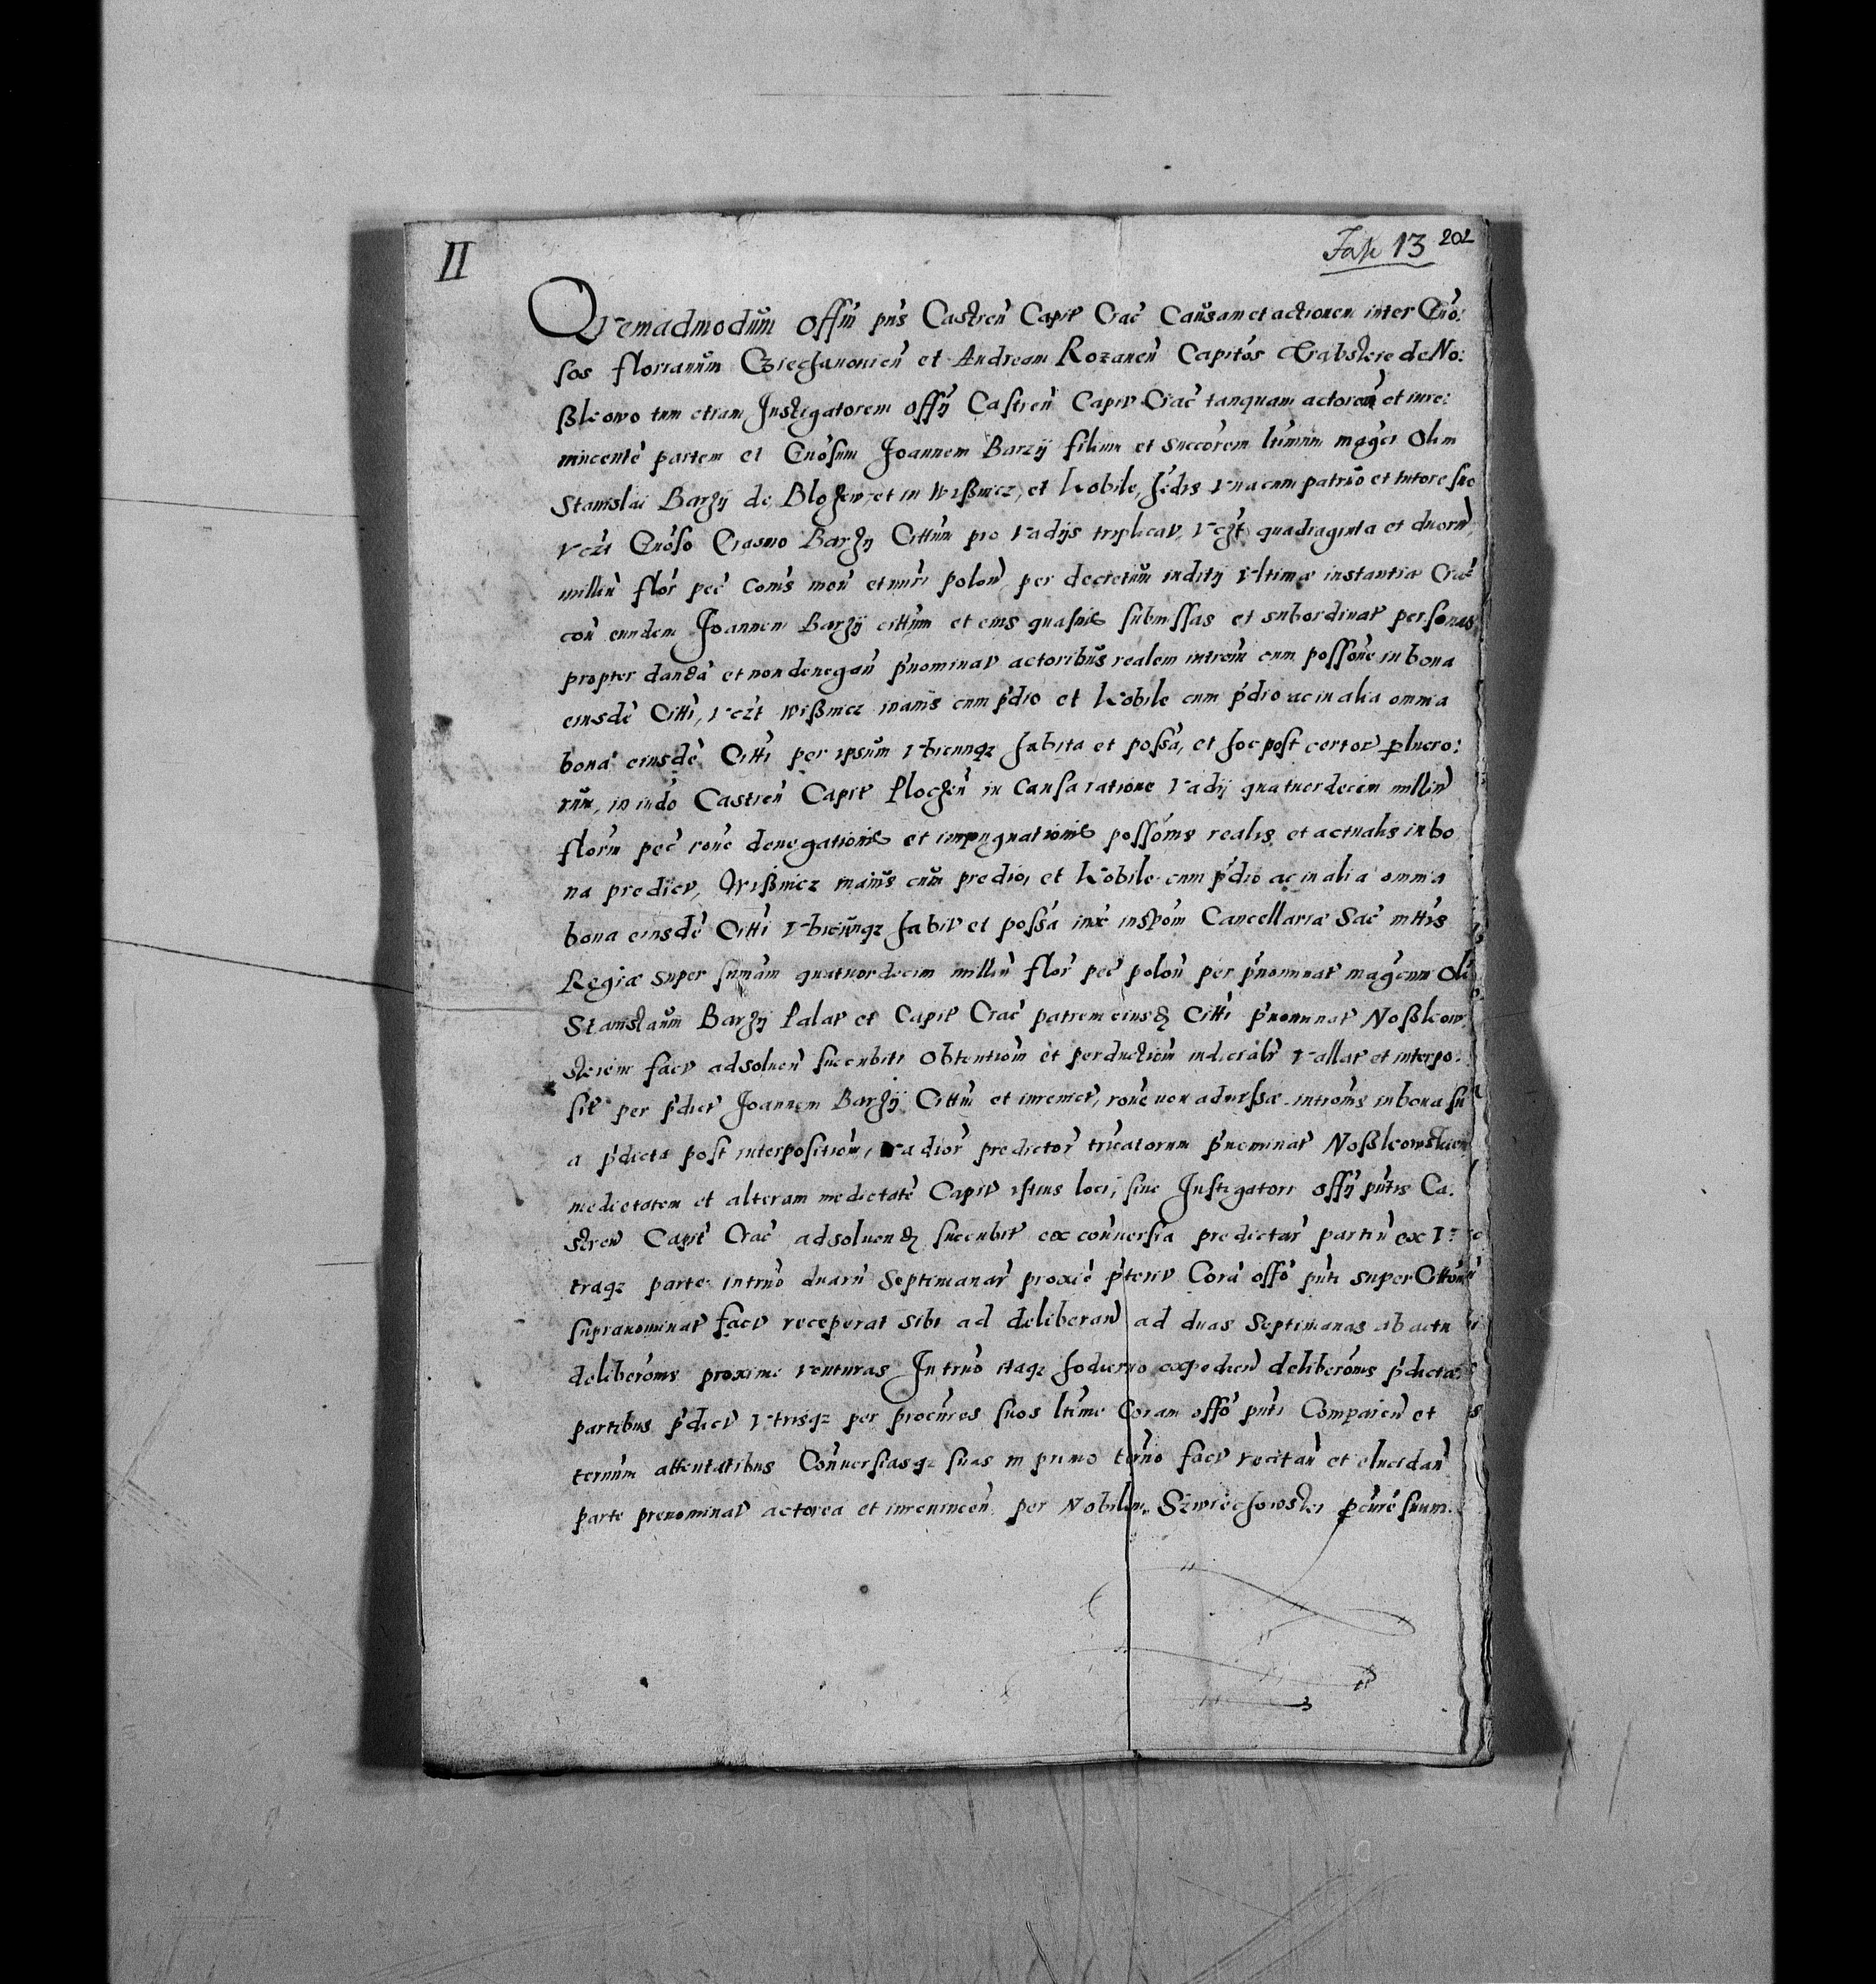 II
Fasc 13 202
Quemadmodum Offm pns Castren Capit Crac Causam et actionem inter Gno:
sos florianum Cziechanouien et Andream Rozanen Capitos Srabskie de No:
ßkowo tum etiam Instigatorem offij Castren Capit Crac tanquam actorem et iure:
uincente partem et Gnosum Joannem Barzij filium et succorem ltimum magci Olim
Stanislai Barzij de Blozew, et in Wißnicz, et Kobile, hedis vnacum patruo et tutore suo
vczt Gnoso Erasmo Barzij Cittum pro vadijs triplicat, vczt quadraginta et duoru
milliu flor pec Cois mon et nuri polon, per decretum iuditij vltimæ instantiæ Crac
con eundem Joannem Barzij cittum et eius quasuis submissas et subordinat personas
propter danda et non denegan pnominat actoribus realem introm cum possone in bona
eiusde Citti, vczt Wißnicz maius cum pdio et Kobile cum pdio ac in alia omnia
bona eiusde Citti per ipsum vbicunqz habita et possa, et hoc post certor plucro:
rum, in iudo Castren Capit Ploczen in Causa ratione vadij quatuordecim milliu
floru pec rone denegationis et impugnationis possonis realis et actualis in bo
na predict, Wißnicz maius cum predio, et Kobile cum pdio ac in alia omnia
bona eiusde Citti vbicunqz habit et possa iux inspom Cancellariæ Sac mttis
Regiæ super sumam quatuordecim milliu flor pec polon per pnominat magcum Oli
Stanislaum Barzij Palat et Capit Crac patrem eiusd Citti pnominat Noßkow:
skiem fact ad soluen succubiti obtentiom et perductiom iudicialr vallat et interpo:
sit per pdict Joannem Barzij Cittm et iureuict, rone non aduersæ introms in bona su
a pdicta post interpositiom, vadior predictor tricatorum pnominat Noßkowskiem
medietatem et alteram medietate Capit istius loci, siue Instigatori offij pntis Ca:
stren Capit Crac ad soluend succubit ex conuersia predictar partiu ex v:
traqz parte intrno duaru Septimanar proxie pterit Cora offo pnti super Citton
supranominat fact receperat sibi ad deliberan ad duas Septimanas ab actu
deliberonis proxime venturas In trno itaqz hodierno expedien deliberonis pdictæ
partibus pdict vtrisqz per procures suos ltime Coram offo pnti Comparen et
ternum attentatibus Conuersiasqz suas in primo terno fact recitan et elucidan
parte prenominat actorea et iureuincen per Nobilem Szwiechowski pcure suum.